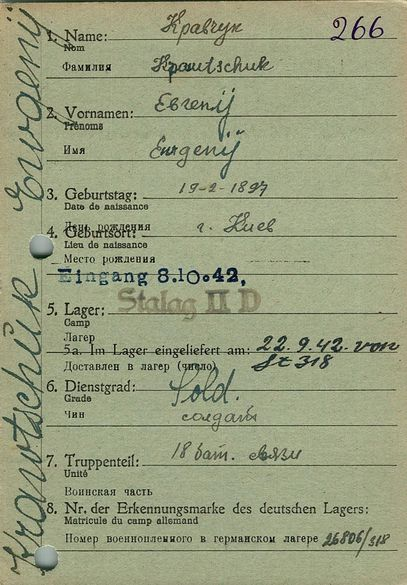 Krawtschuk Ewgenij
266
1. Name: Кравчук
Nom
Фамилия Krawtschuk
2. Vornamen: Евгениj
Prénoms
Имя Ewgenij
3. Geburtstag: 19-2-1897
Date de naissance
День рождения
4. Geburtsort: г. Киев
Lieu de naissance
Место рождения
Eingang 8.10.42,
Stalag II D
5. Lager:
Camp
Лагер
5a. Im Lager eingeliefert am: 22.9.42. von
Доставлен в лагер (число) St 318
6. Dienstgrad: Sold.
Grade
Чин солдат
7. Truppenteil: 18 бат. связи
Unité
Воинская часть
8. Nr. der Erkennungsmarke des deutschen Lagers:
Matricule du camp allemand
Номер военнопленного в германском лагере 26806/318